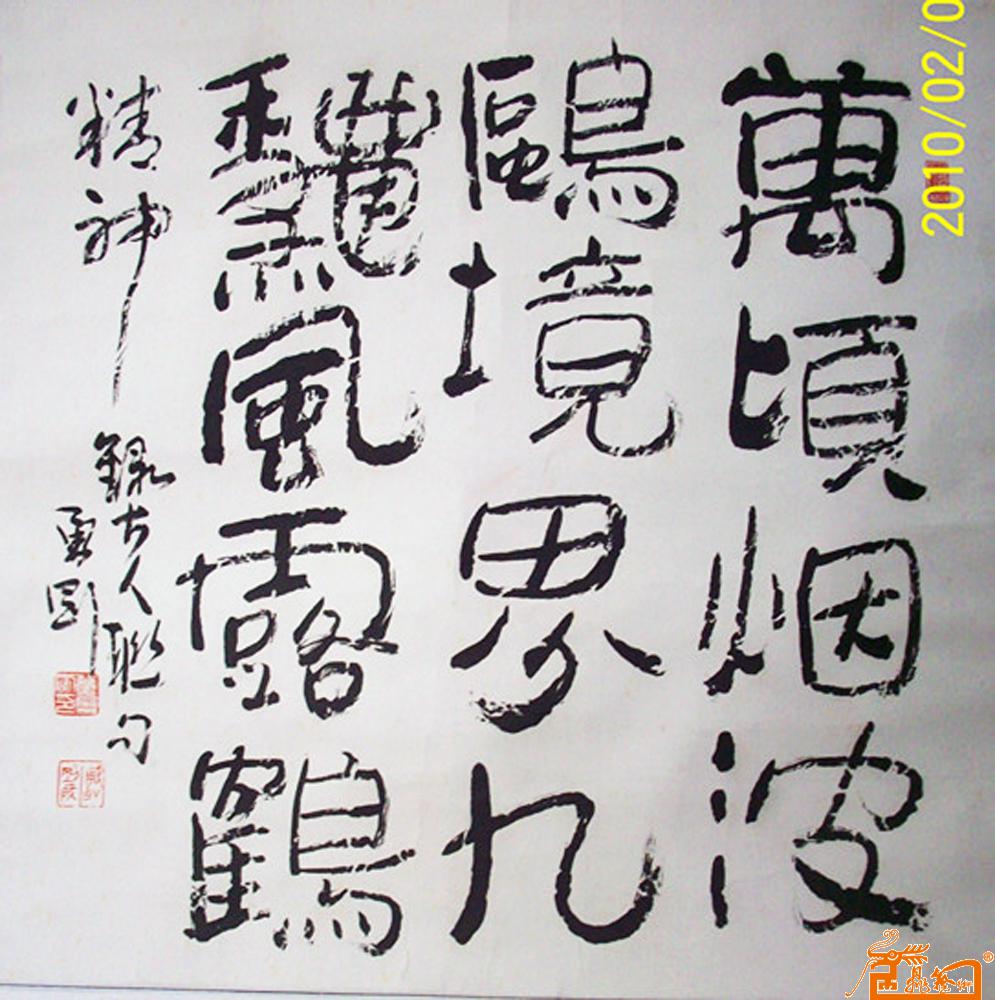 萬頃烟波
鷗境界九
風露鶴
精神
錄古人聯句
2010/02/0